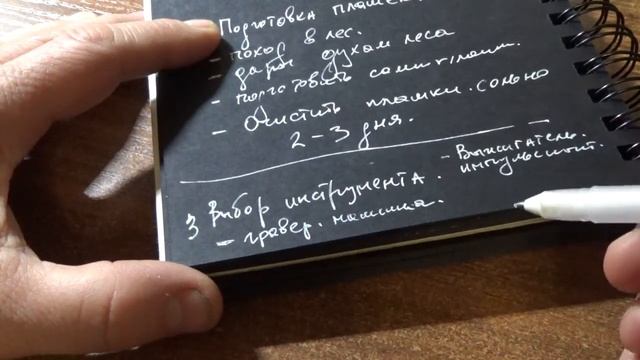 Подготовка плашек
- поход в лес.
- дары духам леса
- подготовить самих плашк.
- Очистить плашки. сохню
2-3 дня.
3 Выбор инструмента. - Выжигатель.
импульсный.
- гравер. машинка.